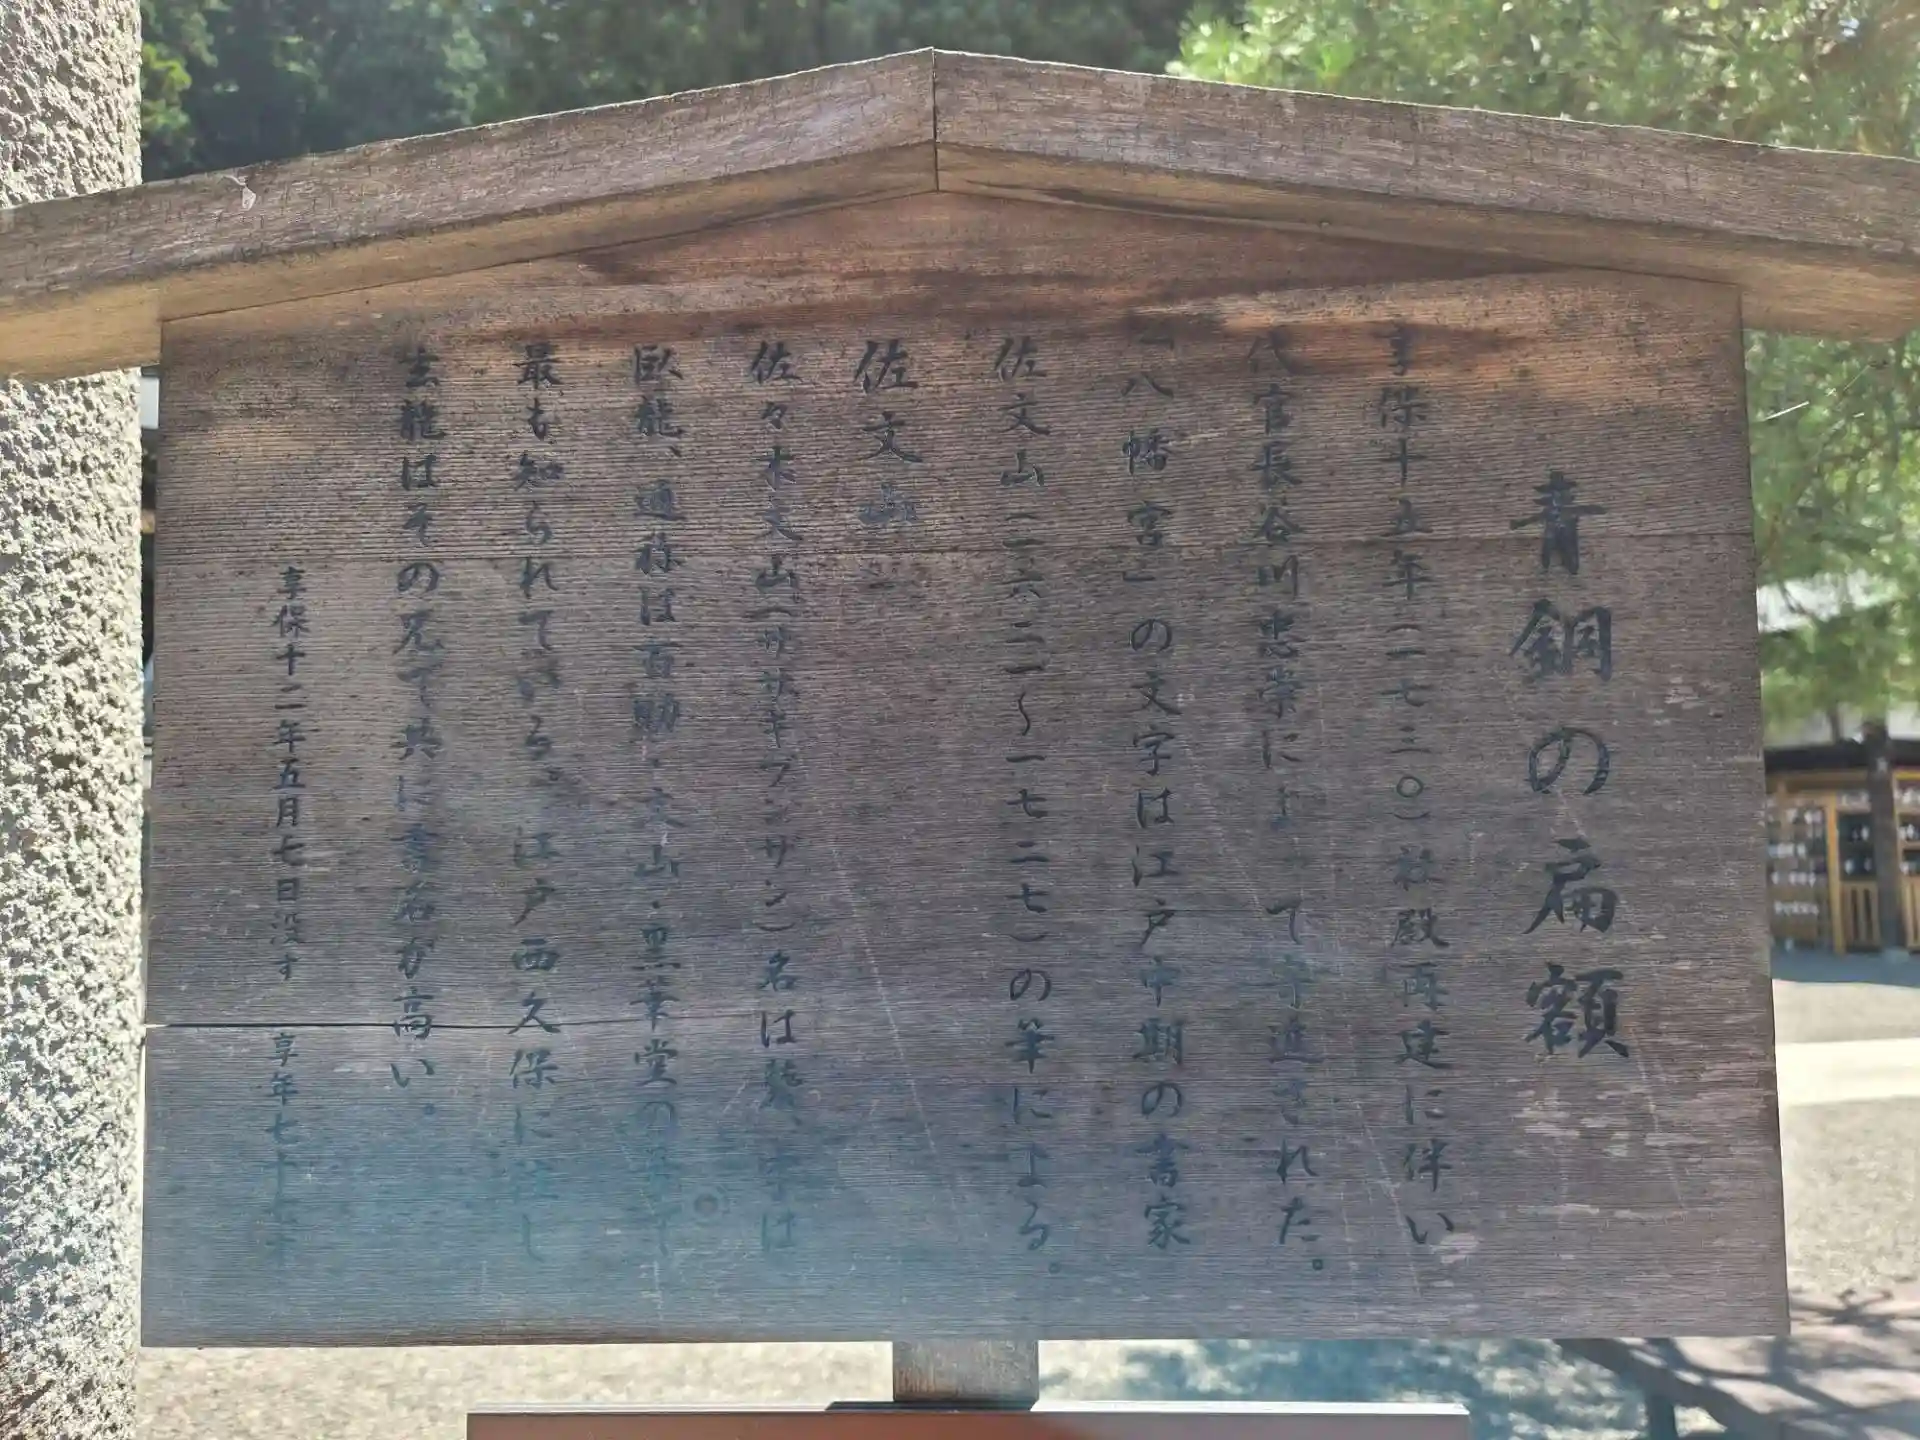 青銅の扁額
享保十五年(一七三〇)社殿再建に伴い
代官長谷川忠崇によって寄進された。
「八幡宮」の文字は江戸中期の書家
佐文山(一六二一〜一七二七)の筆による。
佐文山
佐々木文山(ササキブンザン)名は襲、字は
臥龍、通称は百助・文山・黒華堂の号で
最も知られている。江戸西久保に住し
玄龍はその兄で共に書名が高い。
享保十二年五月七日没す 享年七十七才